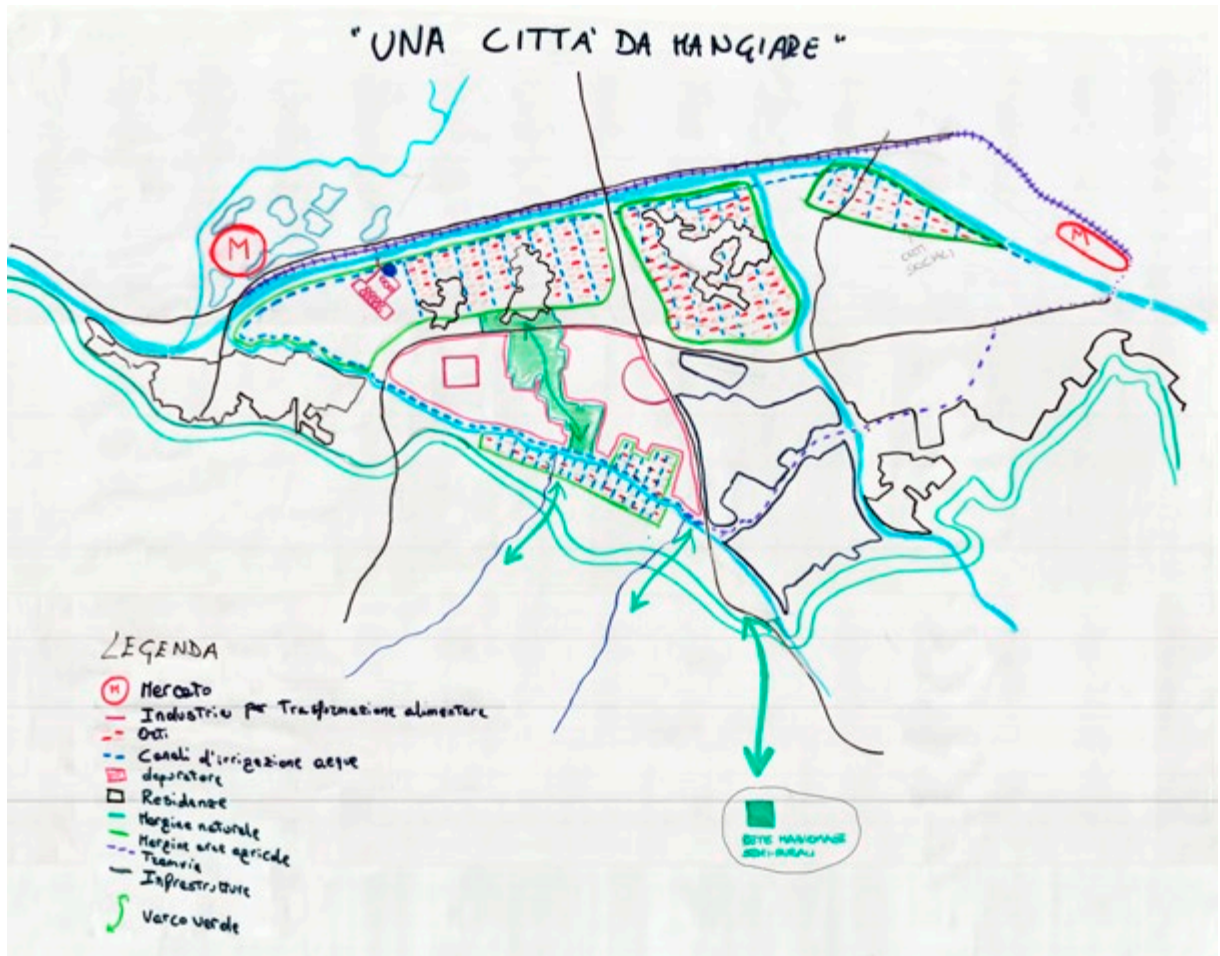 "UNA CITTA' DA MANGIARE"
M
M
ORTI
SOCIALI
LEGENDA
M Mercato
Industria per Trasformazione alimentare
Orti
Canali d'irrigazione acque
depuratore
Residenze
Margine naturale
Margine aree agricole
Tramvia
Infrastrutture
Varco verde
RETE